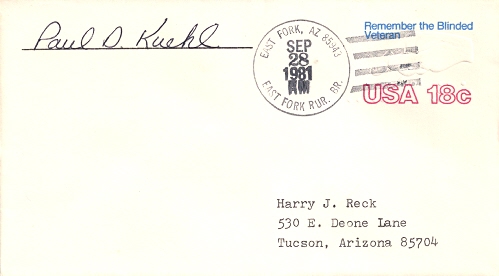 Paul D. Kuehl
EAST FORK, AZ 85943
SEP
28
1981
AM
EAST FORK RUR. BR.
Remember the Blinded
Veteran
USA 18c
Harry J. Reck
530 E. Deone Lane
Tucson, Arizona 85704